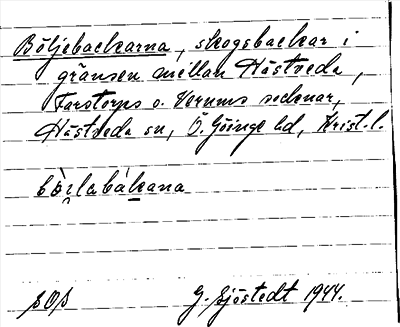 Böljebackarna, skogsbackar i
gränsen mellan Hästveda,
Farstorps o. Verums socknar,
Hästveda sn, Ö. Göinge hd, Krist. l.
bö̀rlabákana
SOS G. Sjöstedt 1944.